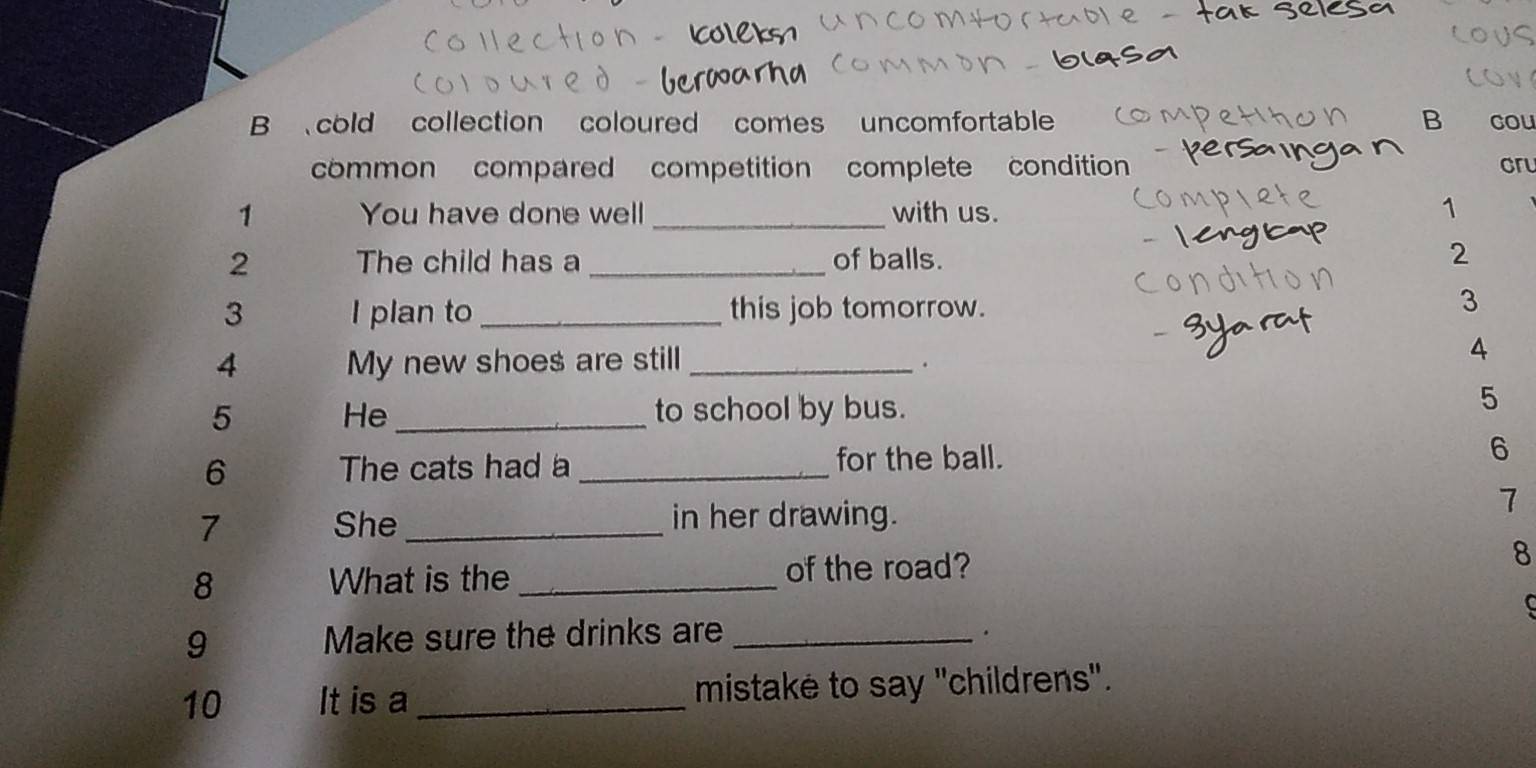 collection - koleksi uncomfortable - tak selesa
coloured - berwarna common - biasa
B cold collection coloured comes uncomfortable
common compared competition complete condition
competition
- persaingan
complete
- lengkap
condition
- syarat
1 You have done well ____________ with us.
2 The child has a ____________ of balls.
3 I plan to ____________ this job tomorrow.
4 My new shoes are still ____________ .
5 He ____________ to school by bus.
6 The cats had a ____________ for the ball.
7 She ____________ in her drawing.
8 What is the ____________ of the road?
9 Make sure the drinks are ____________ .
10 It is a ____________ mistake to say "childrens".
B
1
2
3
4
5
6
7
8